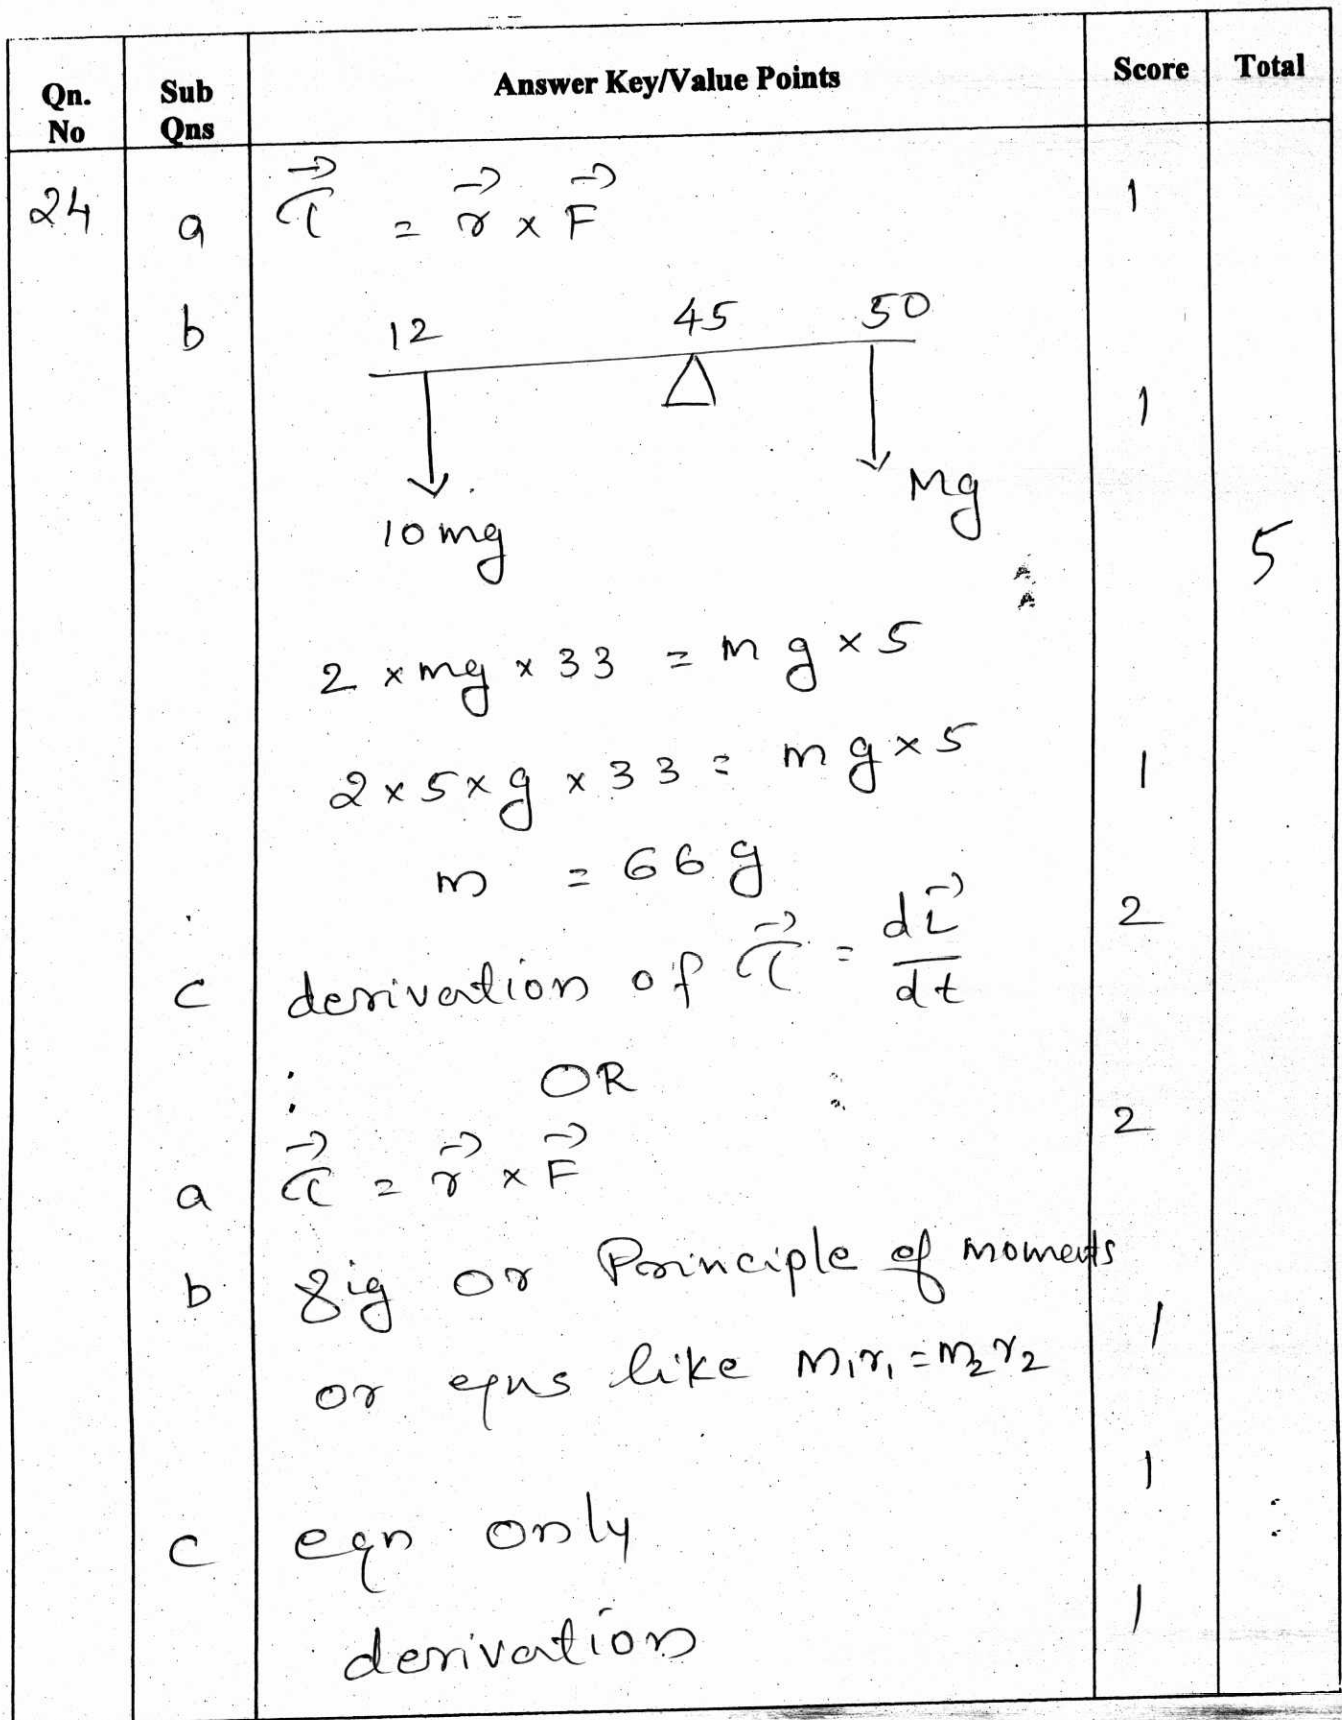 Qn. No Sub Qns Answer Key/Value Points Score Total
24 a τ⃗ = r⃗ × F⃗ 1
b 12 45 50
1
10mg Mg
5
2 × mg × 33 = mg × 5
2 × 5 × g × 33 = mg × 5 1
m = 66 g
c derivation of τ⃗ = dL⃗/dt 2
OR
a τ⃗ = r⃗ × F⃗ 2
b fig or Principle of moments
or eqns like m₁r₁ = m₂r₂ 1
c eqn only 1
derivation 1